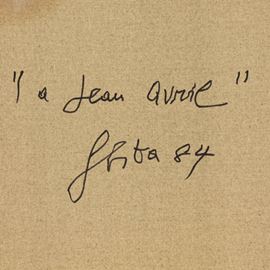 "1 a Jean avril"
Ghita 84